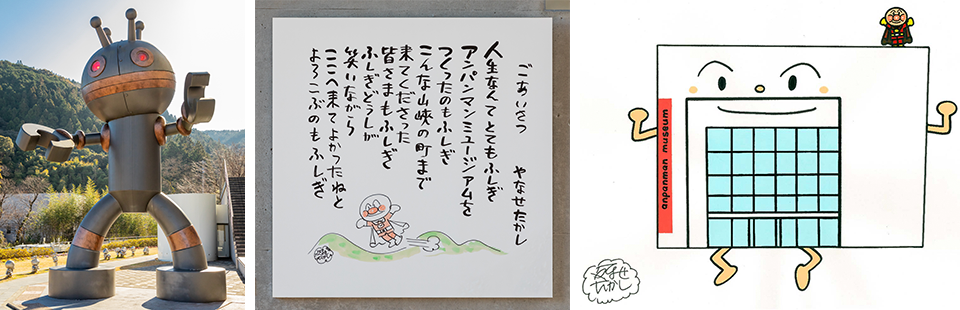 ごあいさつ
やなせたかし
人生なんてとてもふしぎ
アンパンマンミュージアムを
つくったのもふしぎ
こんな山峡の町まで
来てくださった
皆さまもふしぎ
ふしぎどうしが
笑いながら
ここへ来てよかったねと
よろこぶのもふしぎ
anpanman museum
やなせ
たかし